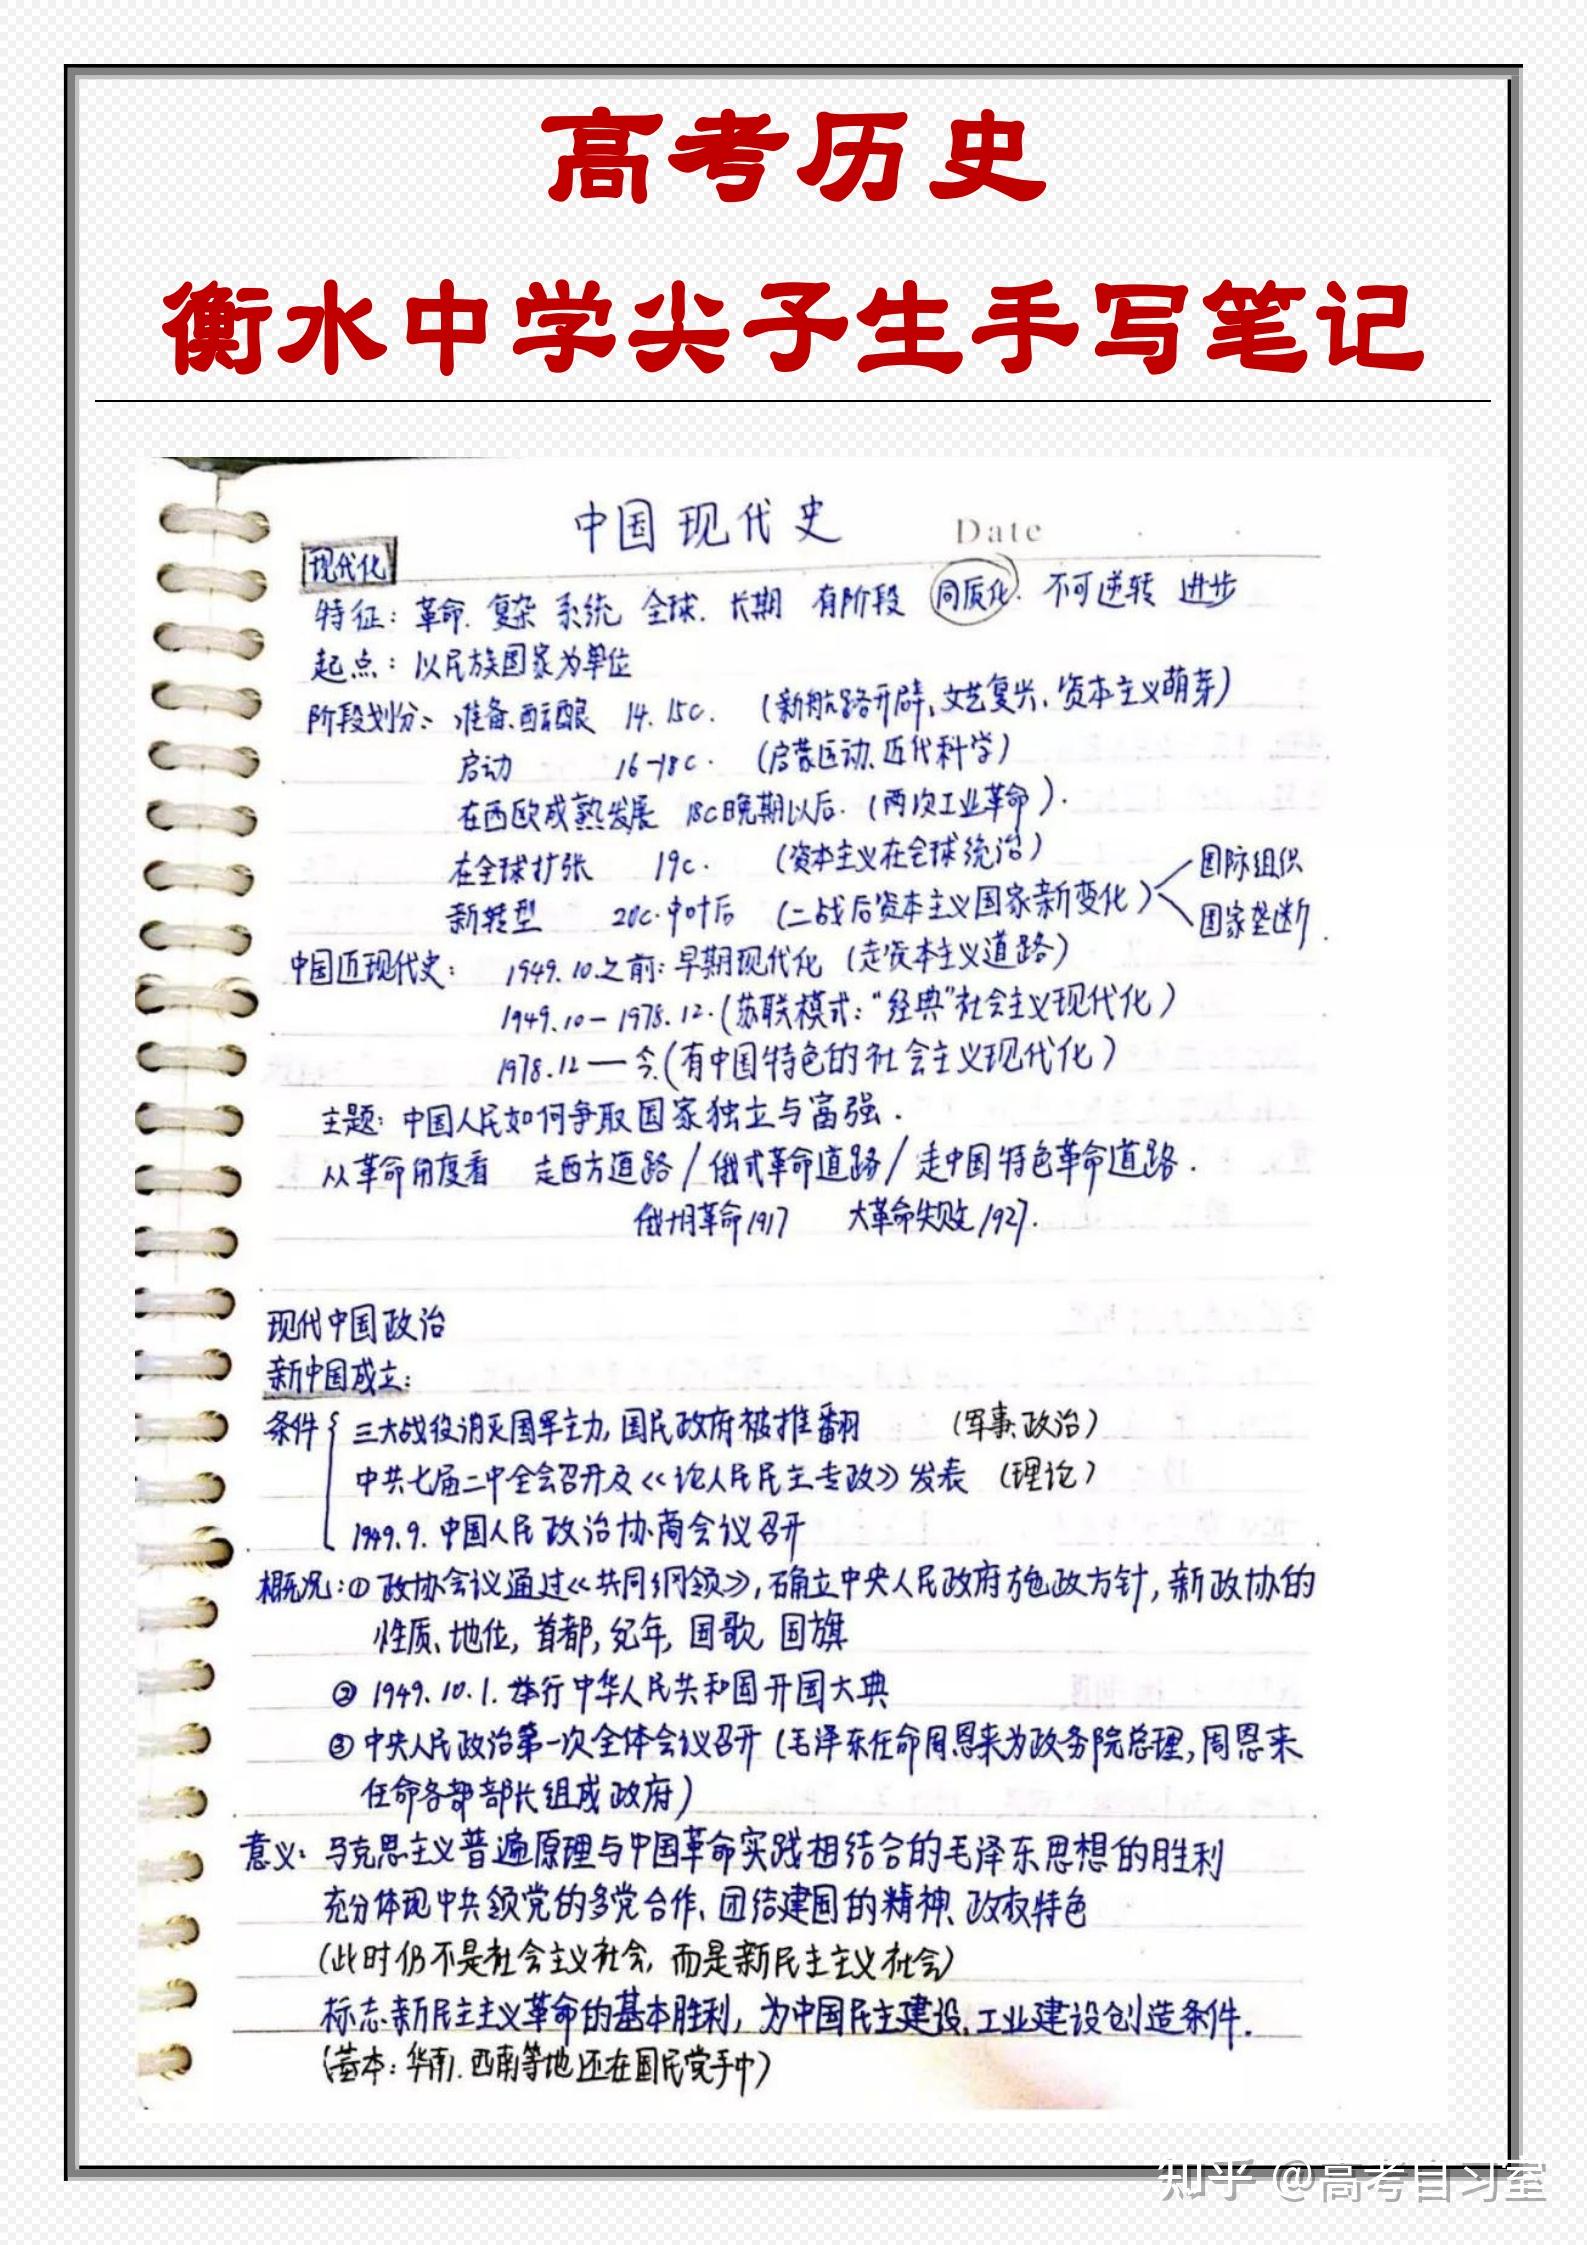 高考历史
衡水中学尖子生手写笔记
中国现代史 Date
现代化
特征：革命. 复杂 系统 全球. 长期 有阶段 同质化. 不可逆转 进步
起点：以民族国家为单位
阶段划分：准备、酝酿 14. 15c. （新航路开辟、文艺复兴、资本主义萌芽）
启动 16-18c. （启蒙运动、近代科学）
在西欧成熟发展 18c晚期以后. （两次工业革命）.
在全球扩张 19c. （资本主义在全球统治）
新转型 20c.中叶后 （二战后资本主义国家新变化） 国际组织
国家垄断.
中国近现代史： 1949.10之前：早期现代化（走资本主义道路）
1949.10－1978.12.（苏联模式：“经典”社会主义现代化）
1978.12 — 今.（有中国特色的社会主义现代化）
主题：中国人民如何争取国家独立与富强.
从革命角度看 走西方道路/俄式革命道路/走中国特色革命道路.
俄十月革命1917 大革命失败1927.
现代中国政治
新中国成立：
条件 三大战役消灭国军主力，国民政府被推翻 （军事、政治）
中共七届二中全会召开及《论人民民主专政》发表 （理论）
1949.9.中国人民政治协商会议召开
概况：①政协会议通过《共同纲领》，确立中央人民政府施政方针，新政协的
性质、地位，首都，纪年，国歌，国旗
② 1949.10.1.举行中华人民共和国开国大典
③ 中央人民政治第一次全体会议召开（毛泽东任命周恩来为政务院总理，周恩来
任命各部部长组成政府）
意义：马克思主义普遍原理与中国革命实践相结合的毛泽东思想的胜利
充分体现中共领党的多党合作、团结建国的精神、政权特色
（此时仍不是社会主义社会，而是新民主主义社会）
标志新民主主义革命的基本胜利，为中国民主建设、工业建设创造条件.
（基本：华南.西南等地还在国民党手中）
知乎 @高考自习室